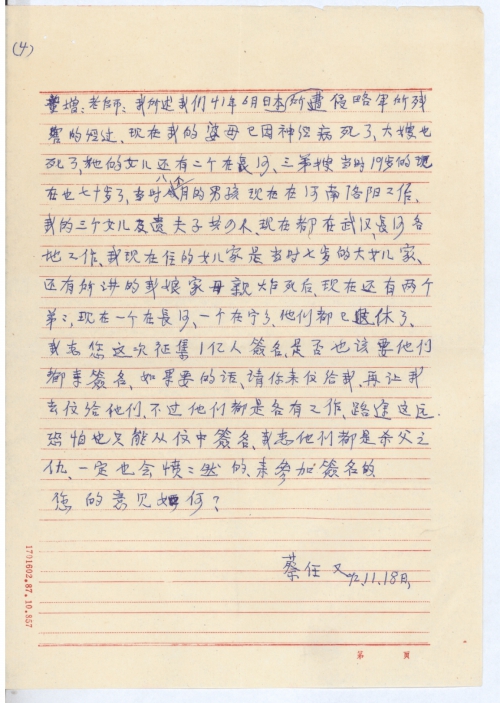 (4)
童增:老师:我所述我们41年6月日本所遭侵略军所残
害的经过、现在我的婆母已因神经病死了、大嫂也
死了,她的女儿还有二个在长沙、三弟嫂当时19岁的现
在也七十岁了,当时八个月的男孩现在在河南洛阳工作、
我的三个女儿及遗夫子共4人、现在都在武汉、长沙各
地工作、我现在住的女儿家是当时七岁的大女儿家、
还有所讲的我娘家母亲炸死后、现在还有两个
弟:、现在一个在长沙、一个在宁乡、他们都已退休了、
我想您这次征集1亿人签名,是否也该要他们
都来签名、如果要的话、请你来信给我、再让我
去信给他们、不过他们都是各有工作、路途这远
恐怕也只能从信中签名、我想他们都是杀父之
仇、一定也会愤:然的、来参加签名的
您的意见如何?
蔡任又
92.11.18日,
1701602.87.10.857
第 页